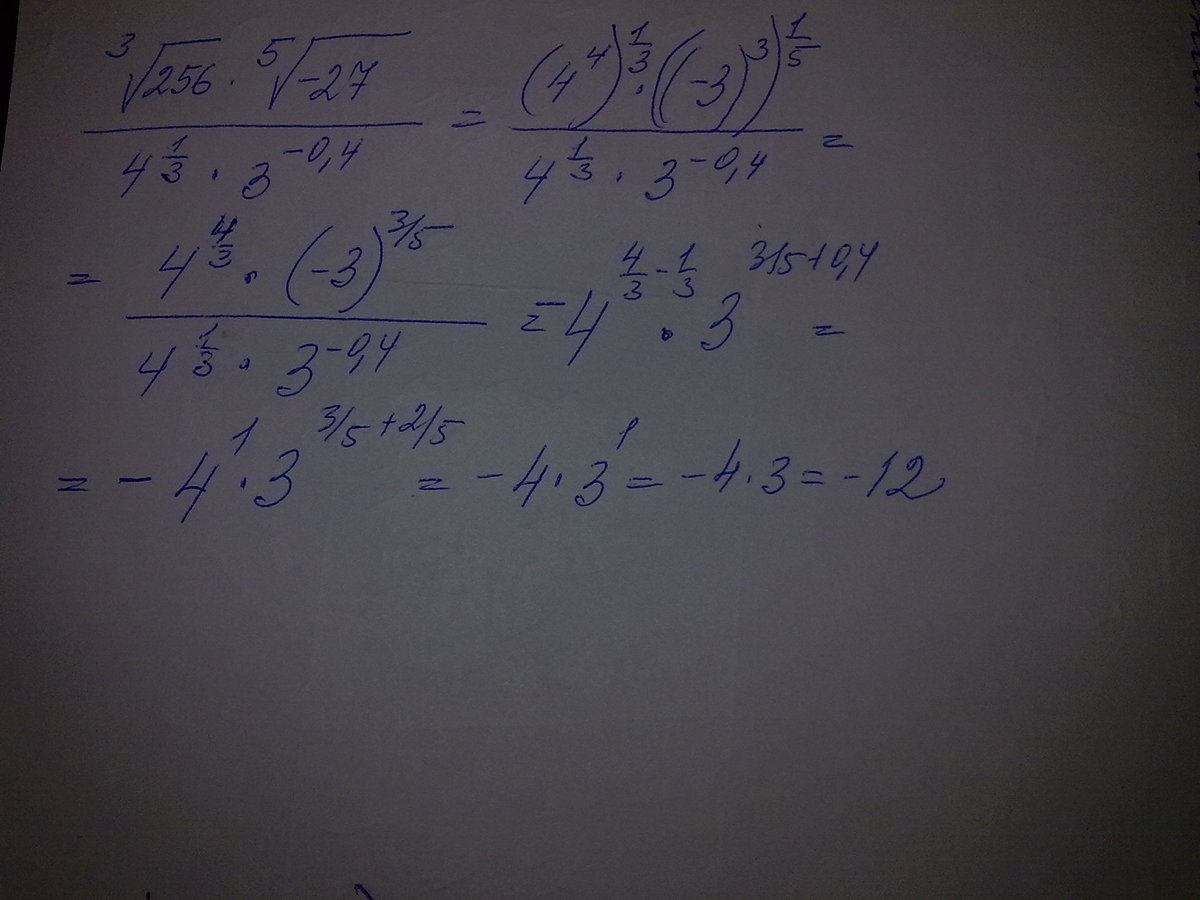 \frac{\sqrt[3]{256} \cdot \sqrt[5]{-27}}{4^{\frac{1}{3}} \cdot 3^{-0,4}} = \frac{(4^4)^{\frac{1}{3}} \cdot ((-3)^3)^{\frac{1}{5}}}{4^{\frac{1}{3}} \cdot 3^{-0,4}} =
= \frac{4^{\frac{4}{3}} \cdot (-3)^{3/5}}{4^{\frac{1}{3}} \cdot 3^{-0,4}} = -4^{\frac{4}{3} - \frac{1}{3}} \cdot 3^{3/5 + 0,4} =
= -4^1 \cdot 3^{3/5 + 2/5} = -4 \cdot 3^1 = -4 \cdot 3 = -12